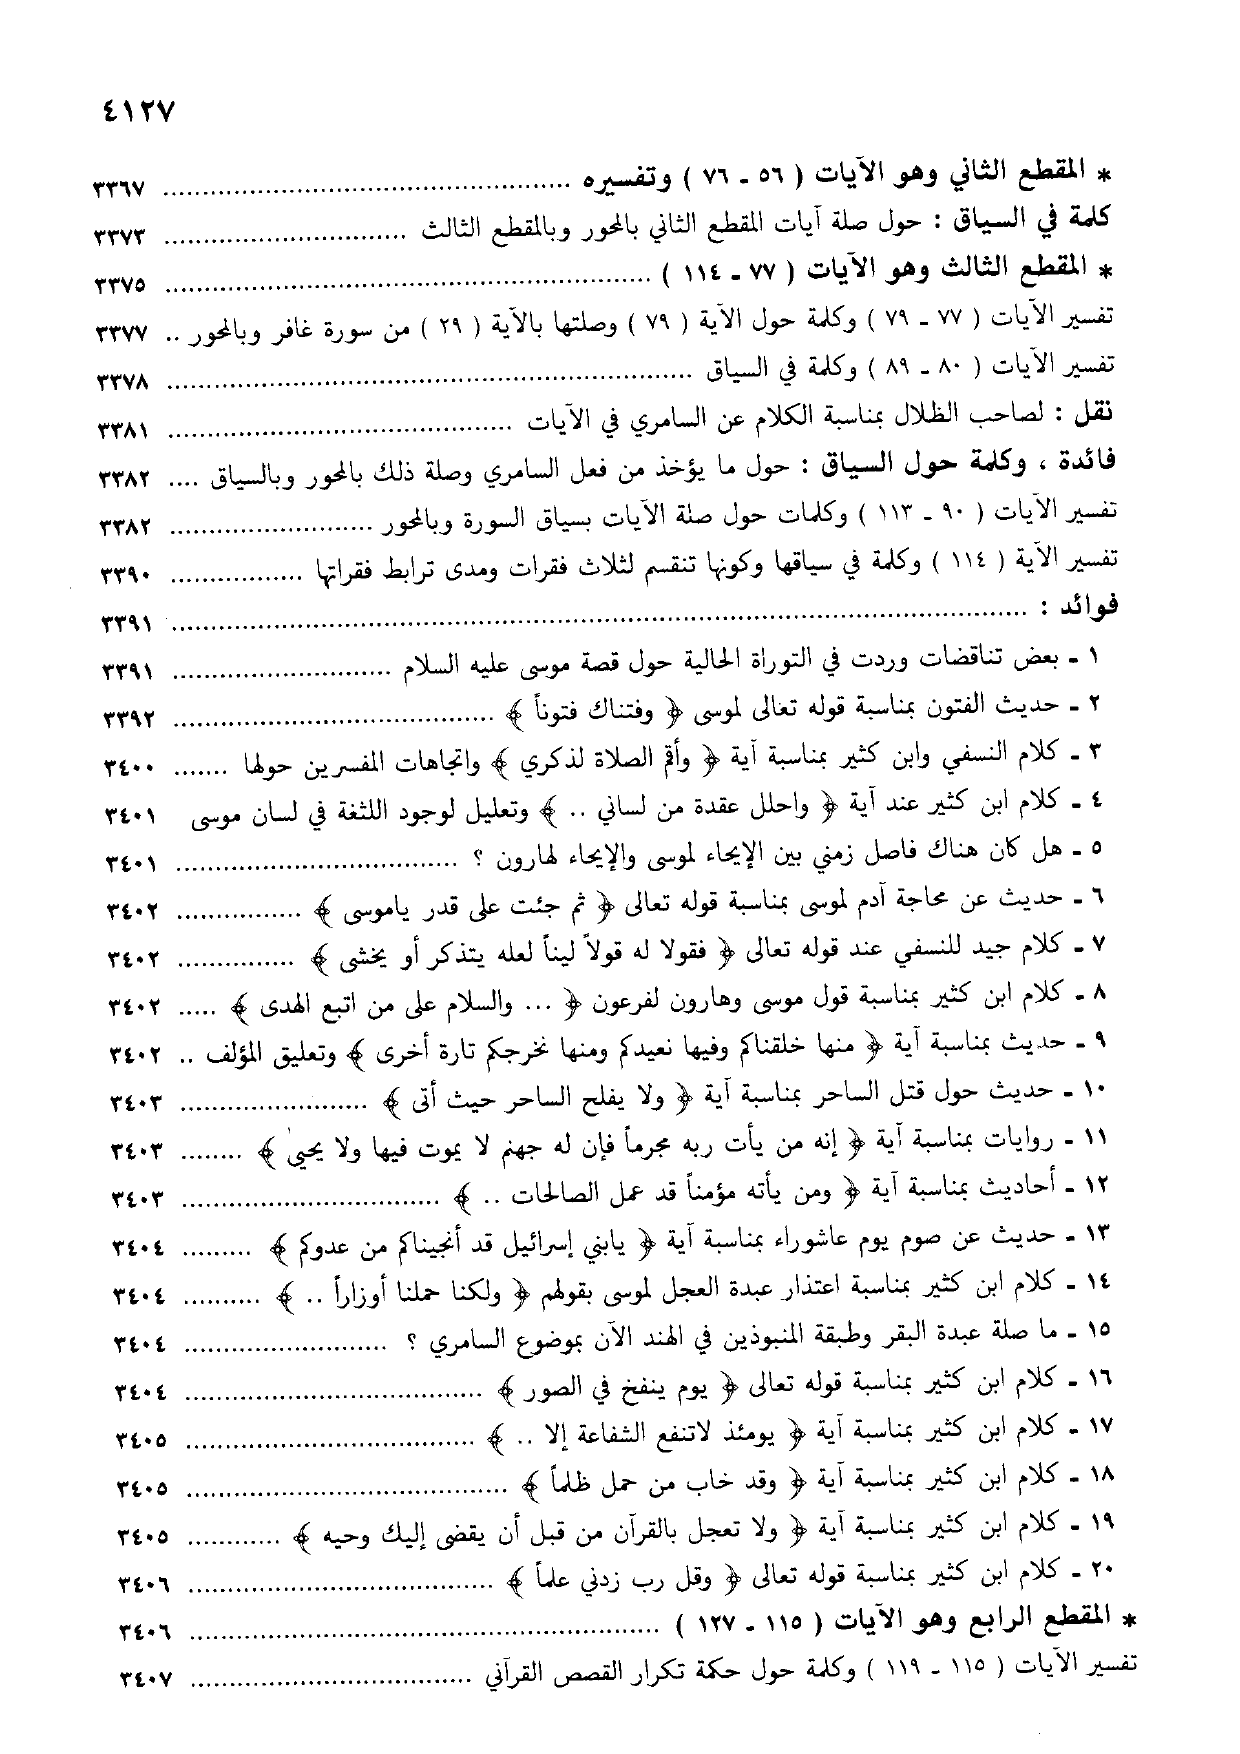 ٤١٢٧
* المقطع الثاني وهو الآيات ( ٥٦ ـ ٧٦ ) وتفسيره .................................................. ٣٣٦٧
كلمة في السياق : حول صلة آيات المقطع الثاني بالمحور وبالمقطع الثالث ............................... ٣٣٧٣
* المقطع الثالث وهو الآيات ( ٧٧ ـ ١١٤ ) ............................................................ ٣٣٧٥
تفسير الآيات ( ٧٧ ـ ٧٩ ) وكلمة حول الآية ( ٧٩ ) وصلتها بالآية ( ٢٩ ) من سورة غافر وبالمحور .. ٣٣٧٧
تفسير الآيات ( ٨٠ ـ ٨٩ ) وكلمة في السياق .................................................................. ٣٣٧٨
نقل : لصاحب الظلال بمناسبة الكلام عن السامري في الآيات ........................................... ٣٣٨١
فائدة ، وكلمة حول السياق : حول ما يؤخذ من فعل السامري وصلة ذلك بالمحور وبالسياق .... ٣٣٨٢
تفسير الآيات ( ٩٠ ـ ١١٣ ) وكلمات حول صلة الآيات بسياق السورة وبالمحور .......................... ٣٣٨٢
تفسير الآية ( ١١٤ ) وكلمة في سياقها وكونها تنقسم لثلاث فقرات ومدى ترابط فقراتها ................. ٣٣٩٠
فوائد : ............................................................................................................ ٣٣٩١
١ ـ بعض تناقضات وردت في التوراة الحالية حول قصة موسى عليه السلام ............................ ٣٣٩١
٢ ـ حديث الفتون بمناسبة قوله تعالى لموسى ﴿ وفتناك فتوناً ﴾ ......................................... ٣٣٩٢
٣ ـ كلام النسفي وابن كثير بمناسبة آية ﴿ وأقم الصلاة لذكري ﴾ واتجاهات المفسرين حولها ....... ٣٤٠٠
٤ ـ كلام ابن كثير عند آية ﴿ واحلل عقدة من لساني .. ﴾ وتعليل لوجود اللثغة في لسان موسى ٣٤٠١
٥ ـ هل كان هناك فاصل زمني بين الإيحاء لموسى والإيحاء لهارون ؟ .................................... ٣٤٠١
٦ ـ حديث عن محاجة آدم لموسى بمناسبة قوله تعالى ﴿ ثم جئت على قدر ياموسى ﴾ ................ ٣٤٠٢
٧ ـ كلام جيد للنسفي عند قوله تعالى ﴿ فقولا له قولاً ليناً لعله يتذكر أو يخشى ﴾ ............... ٣٤٠٢
٨ ـ كلام ابن كثير بمناسبة قول موسى وهارون لفرعون ﴿ ... والسلام على من اتبع الهدى ﴾ ..... ٣٤٠٢
٩ ـ حديث بمناسبة آية ﴿ منها خلقناكم وفيها نعيدكم ومنها نخرجكم تارة أخرى ﴾ وتعليق المؤلف .. ٣٤٠٢
١٠ ـ حديث حول قتل الساحر بمناسبة آية ﴿ ولا يفلح الساحر حيث أتى ﴾ ........................ ٣٤٠٣
١١ ـ روايات بمناسبة آية ﴿ إنه من يأت ربه مجرماً فإن له جهنم لا يموت فيها ولا يحيى ﴾ ........ ٣٤٠٣
١٢ ـ أحاديث بمناسبة آية ﴿ ومن يأته مؤمناً قد عمل الصالحات .. ﴾ ................................. ٣٤٠٣
١٣ ـ حديث عن صوم يوم عاشوراء بمناسبة آية ﴿ يابني إسرائيل قد أنجيناكم من عدوكم ﴾ ......... ٣٤٠٤
١٤ ـ كلام ابن كثير بمناسبة اعتذار عبدة العجل لموسى بقولهم ﴿ ولكنا حملنا أوزاراً .. ﴾ .......... ٣٤٠٤
١٥ ـ ما صلة عبدة البقر وطبقة المنبوذين في الهند الآن بموضوع السامري ؟ .......................... ٣٤٠٤
١٦ ـ كلام ابن كثير بمناسبة قوله تعالى ﴿ يوم ينفخ في الصور ﴾ ...................................... ٣٤٠٤
١٧ ـ كلام ابن كثير بمناسبة آية ﴿ يومئذ لاتنفع الشفاعة إلا .. ﴾ ..................................... ٣٤٠٥
١٨ ـ كلام ابن كثير بمناسبة آية ﴿ وقد خاب من حمل ظلماً ﴾ ......................................... ٣٤٠٥
١٩ ـ كلام ابن كثير بمناسبة آية ﴿ ولا تعجل بالقرآن من قبل أن يقضى إليك وحيه ﴾ ............ ٣٤٠٥
٢٠ ـ كلام ابن كثير بمناسبة قوله تعالى ﴿ وقل رب زدني علماً ﴾ ....................................... ٣٤٠٦
* المقطع الرابع وهو الآيات ( ١١٥ ـ ١٢٧ ) ........................................................... ٣٤٠٦
تفسير الآيات ( ١١٥ ـ ١١٩ ) وكلمة حول حكمة تكرار القصص القرآني .................................... ٣٤٠٧